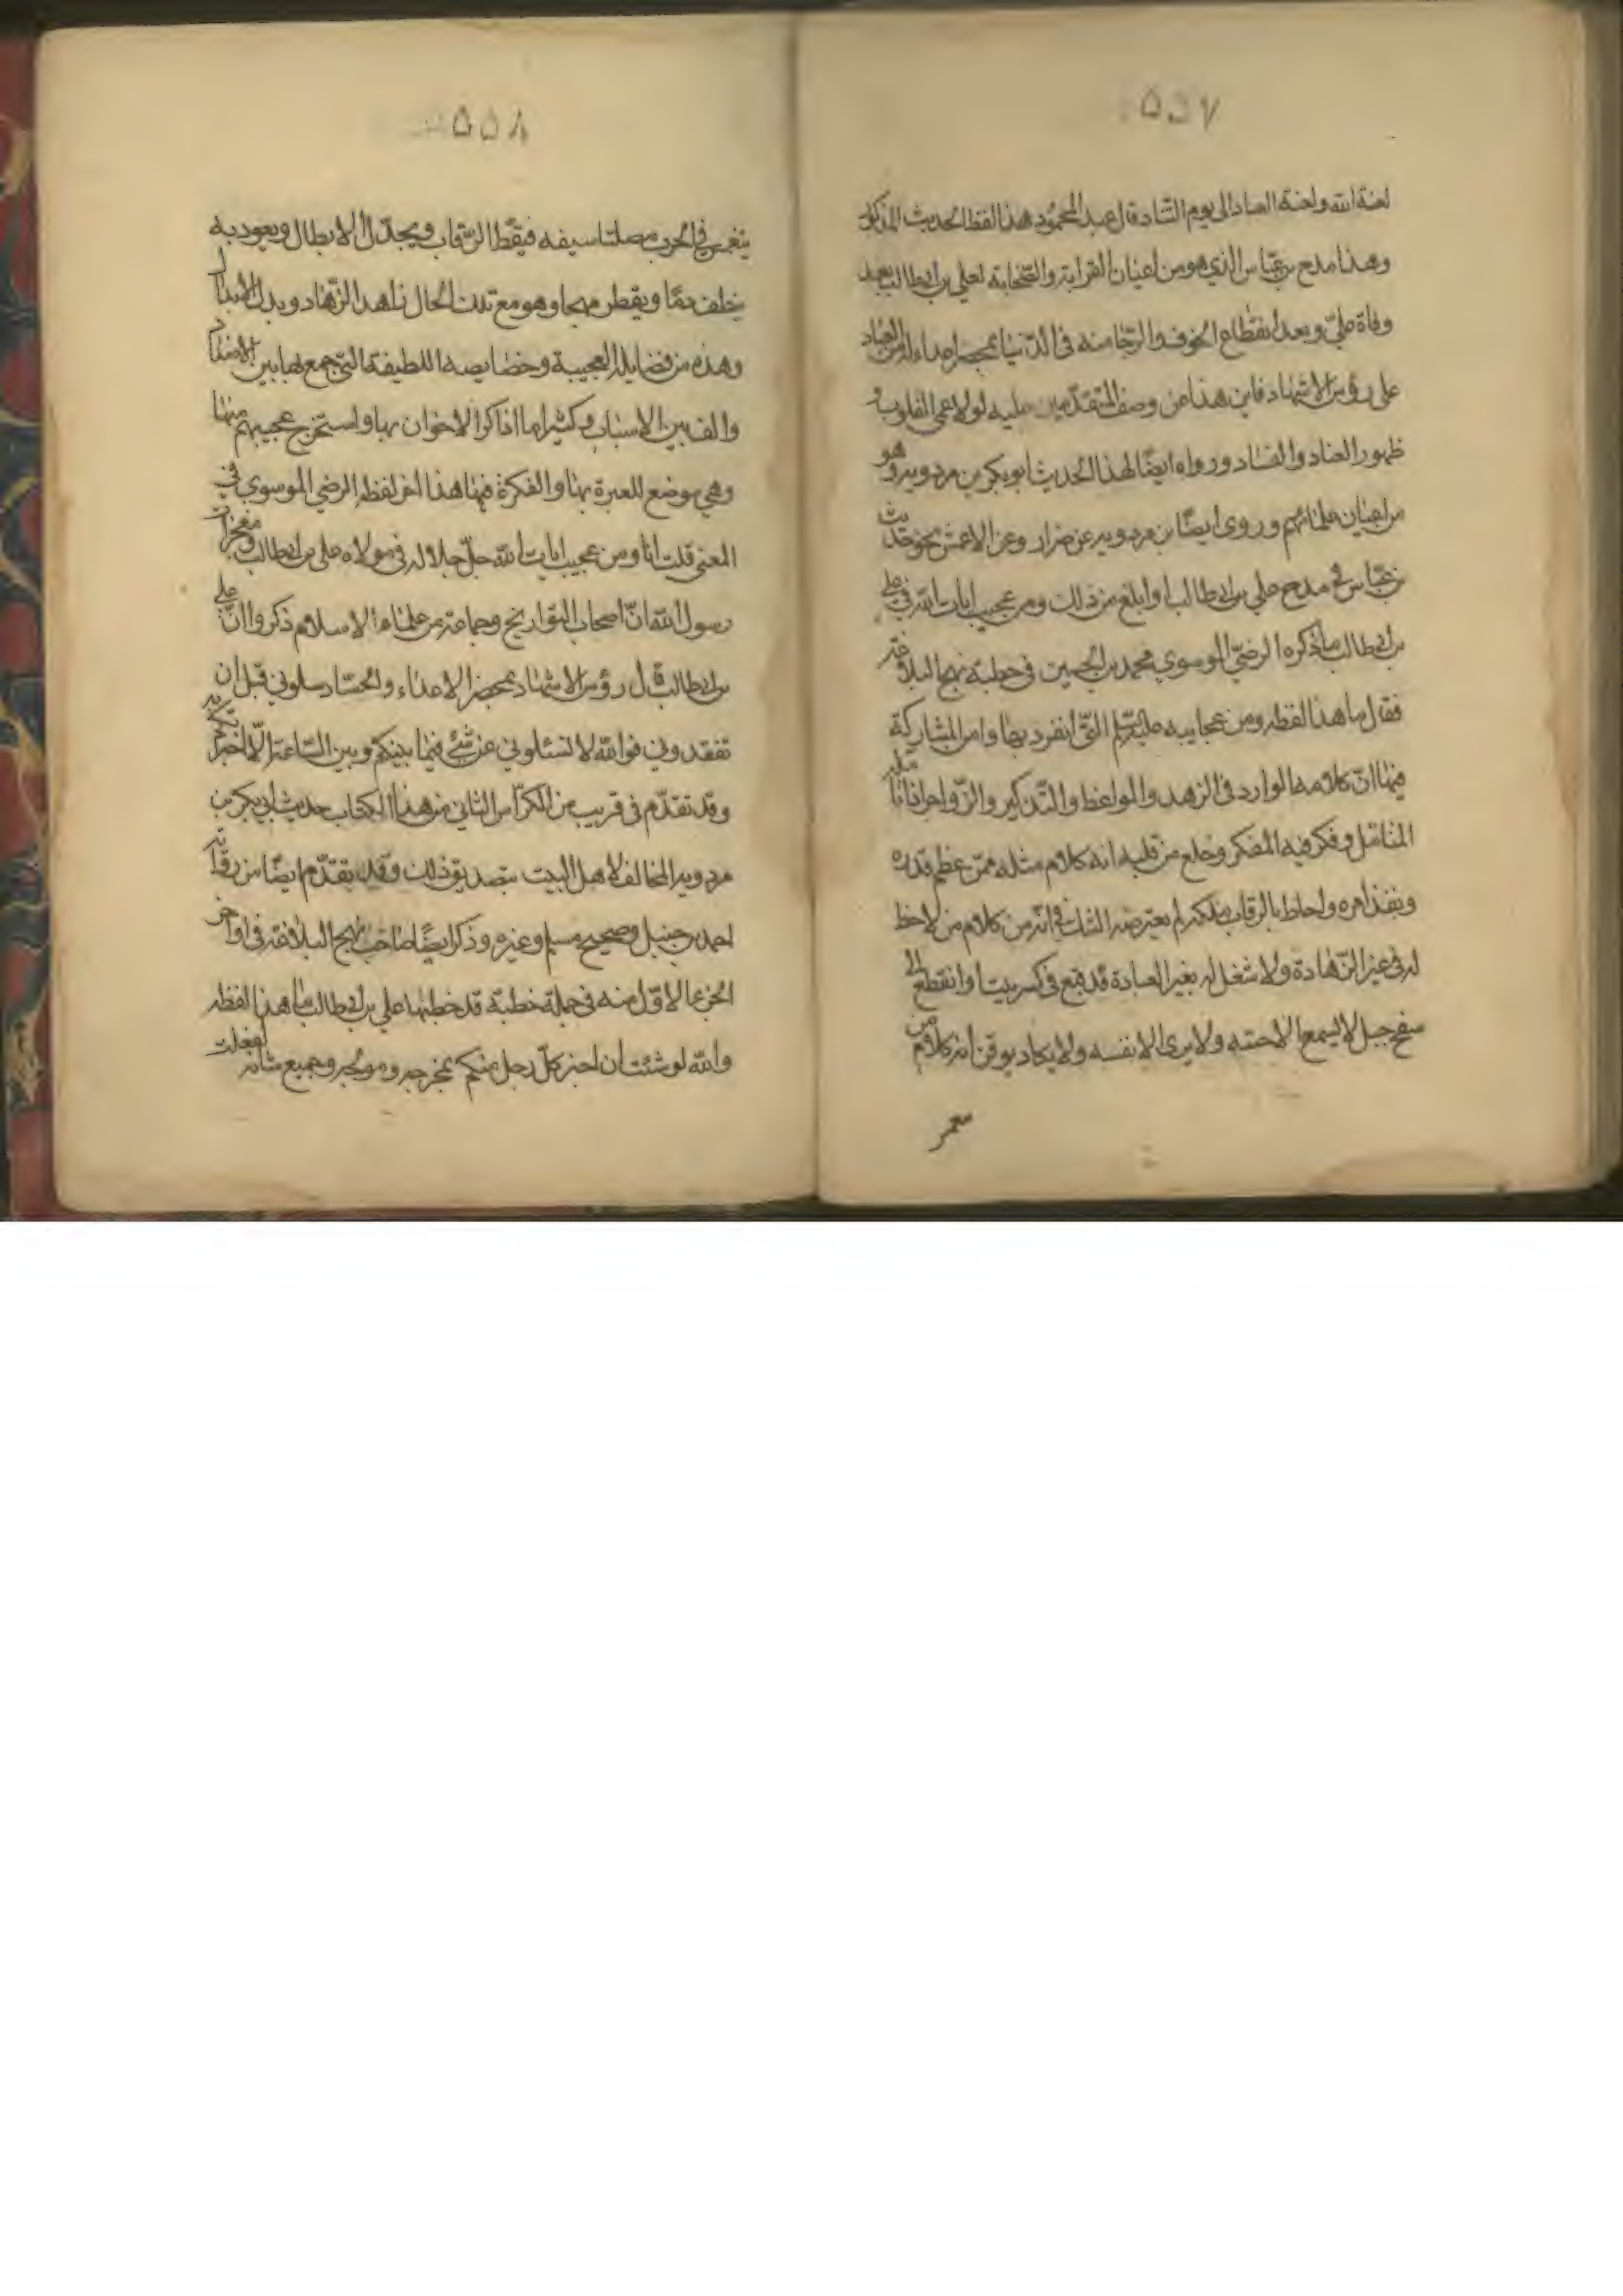 ۵۵۷
لعنة الله ولعنة العباد الى يوم التناد قال عبد المحمود هذا لفظ الحديث المذكور
وهذا مدح بن عباس الذي هو من اعيان القرابة والصحابة لعلي بن ابيطالب بعد
وفاة علي وبعد انقطاع الخوف والرجا منه فى الدنيا بمحضر اعداء له من العباد
على رؤس الاشهاد فاين هذا من وصف المتقدمين عليه لولا عمى القلوب و
ظهور العناد والفساد ورواه ايضا لهذا الحديث ابو بكر بن مردويه وهو
من اعيان علمائهم وروى ايضا بن مردويه عن ضرار وعن الاعمش نحو حديث
بن عباس فى مدح علي بن ابيطالب اوابلغ من ذلك ومن عجيب ايات الله فى علي
بن ابيطالب ما ذكره الرضي الموسوي محمد بن الحسين فى خطبة نهج البلاغة
فقال ما هذا لفظه ومن عجايبه عليه السلم التى انفرد بها وامن المشاركة
فيها ان كلامه الوارد فى الزهد والمواعظ والتذكير والزواجر اذا تامله
المتامل وفكر فيه المفكر وخلع من قلبه انه كلام مثله ممن عظم قدره
ونفذ امره واحاط بالرقاب ملكه لم يعترضه الشك فى انه من كلام من لاحظ
له فى غير الزهادة ولا شغل له بغير العبادة قد قبع فى كسر بيت او انقطع الى
سفح جبل لا يسمع الا حسه ولا يرى الا نفسه ولا يكاد يوقن انه كلام من
۵۵۸
ينغمس فى الحرب مصلتا سيفه فيقط الرقاب ويجدل الابطال ويعود به
ينطف دما ويقطر مهجا وهو مع تلك الحال زاهد الزهاد وبدل الابدال
وهذه من فضايله العجيبة وخصايصه اللطيفة التى جمع بها بين الاضداد
والف بين الاسباب وكثيرا ما اذاكر الاخوان بها واستخرج عجبهم منها
وهي موضع للعبرة بها والفكرة فيها هذا اخر لفظ الرضي الموسوي فى
المعنى قلت انا ومن عجيب ايات الله جل جلاله فى مولاه علي بن ابيطالب ومعجزات
رسول الله ان اصحاب التواريخ وجماعة من علماء الاسلام ذكروا ان علي
بن ابيطالب قال رؤس الاشهاد بمحضر الاعداء والحساد سلونى قبل ان
تفقدونى فوالله لا تسئلونى عن شئ فيما بينكم وبين الساعة الا اخبرتكم به
وقد تقدم فى قريب من الكراس الثانى من هذا الكتاب حديث ابى بكر بن
مردويه المخالف لاهل البيت بتصديق ذلك وقد تقدم ايضا من رواية
احمد بن حنبل وصحيح مسلم وغيره وذكر ايضا صاحب نهج البلاغة فى اواخر
الجزء الاول منه فى جملة خطبة قد خطبها علي بن ابيطالب ما هذا لفظه
والله لو شئت ان اخبر كل رجل منكم بمخرجه ومولجه وجميع شانه لفعلت